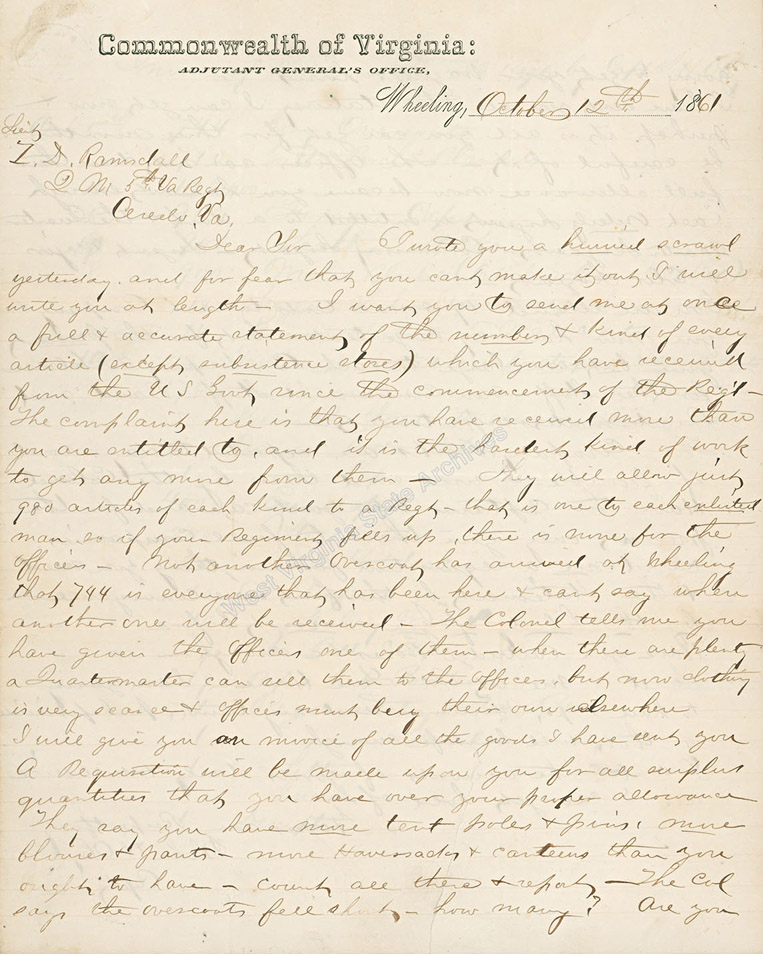 Commonwealth of Virginia:
ADJUTANT GENERAL'S OFFICE,
Wheeling, October 12th 1861
Lieut
Z. D. Ramsdall
Q M 5th Va Regt
Ceredo, Va,
Dear Sir I wrote you a hurried scrawl
yesterday, and for fear that you cant make it out I will
write you at length - I want you to send me at once
a full & accurate statement of the number & kind of every
article (except subsistence stores) which you have received
from the U S Govt since the commencement of the Regt -
The complaint here is that you have received more than
you are entitled to, and it is the hardest kind of work
to get any more from them - They will allow just
980 articles of each kind to a Regt - that is one to each enlisted
man. so if your Regiment fills up, there is none for the
officers - Not another Overcoat has arrived at Wheeling
that 744 is everyone that has been here & cant say when
another one will be received - The Colonel tells me you
have given the Officers one of them - when there are plenty
a Quartermaster can sell them to the officers, but now clothing
is very scarce & officers must buy their own elsewhere
I will give you an invoice of all the goods I have sent you
A Requisition will be made upon you for all surplus
quantities that you have over your proper allowance
They say you have more tent poles & pins, more
blouses & pants - more Haversacks & canteens than you
ought to have - count all these & report - The Col
says the overcoats fell short - how many? Are you
West Virginia State Archives